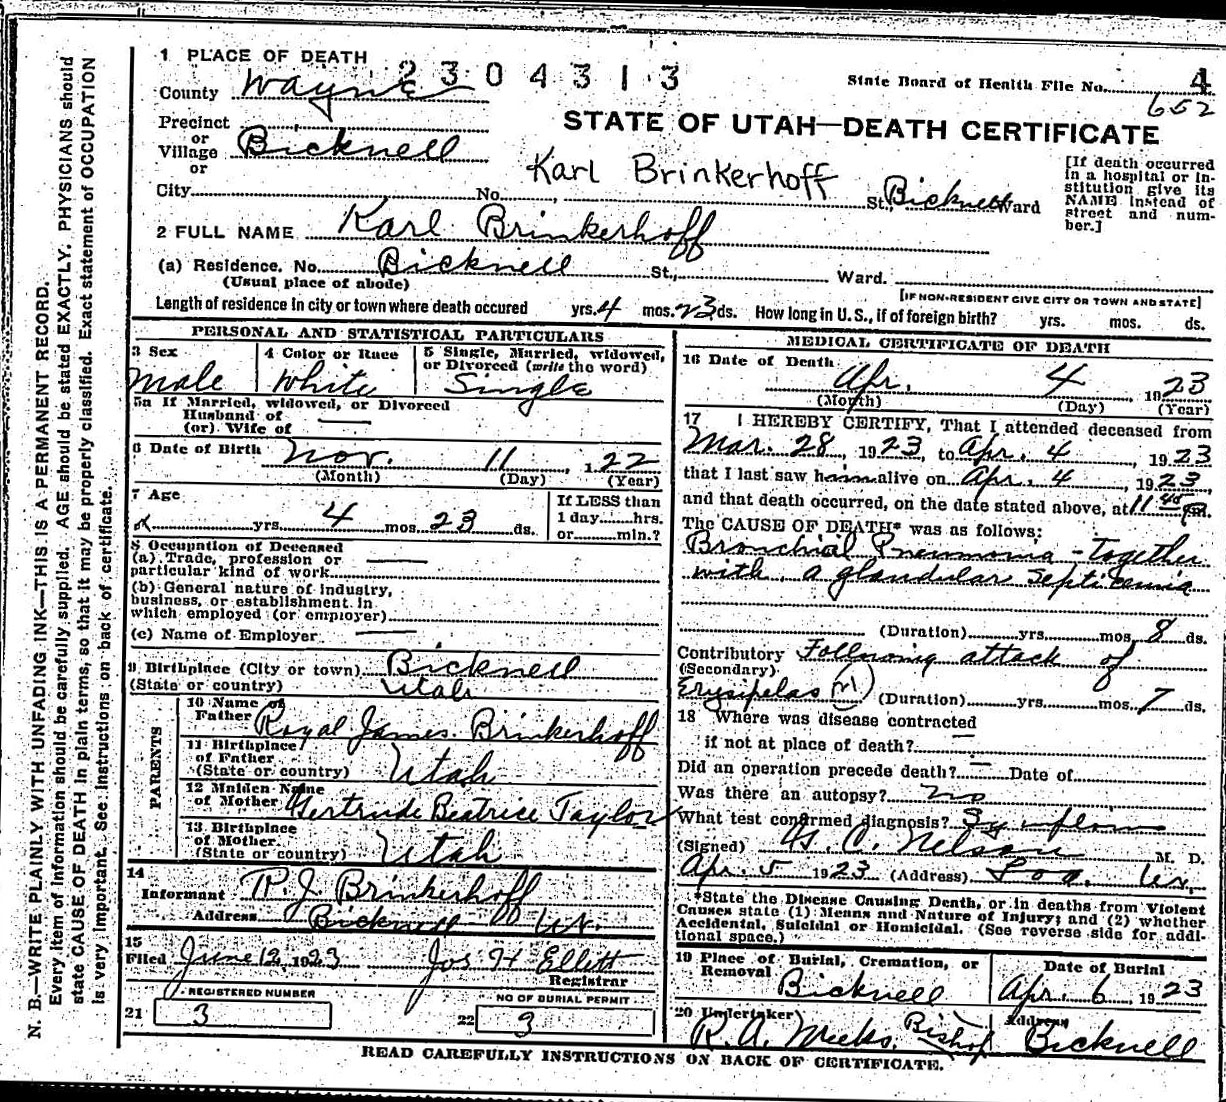 1 PLACE OF DEATH
2304313
State Board of Health File No. 4
652
County Wayne
STATE OF UTAH—DEATH CERTIFICATE
Precinct
or
Village Bicknell
or
Karl Brinkerhoff
City No. St., Bicknell Ward
[If death occurred
in a hospital or in-
stitution give its
NAME instead of
street and num-
ber.]
2 FULL NAME Karl Brinkerhoff
(a) Residence. No. Bicknell St., Ward.
(Usual place of abode)
[IF NON-RESIDENT GIVE CITY OR TOWN AND STATE]
Length of residence in city or town where death occured yrs. 4 mos. 23 ds. How long in U. S., if of foreign birth? yrs. mos. ds.
PERSONAL AND STATISTICAL PARTICULARS
3 Sex
Male
4 Color or Race
White
5 Single, Married, widowed,
or Divorced (write the word)
Single
5a If Married, widowed, or Divorced
Husband of
(or) Wife of
6 Date of Birth Nov. 11, 1 22
(Month) (Day) (Year)
7 Age
yrs. 4 mos. 23 ds.
If LESS than
1 day hrs.
or min.?
8 Occupation of Deceased
(a) Trade, profession or
particular kind of work
(b) General nature of industry,
business, or establishment in
which employed (or employer)
(c) Name of Employer
9 Birthplace (City or town) Bicknell
(State or country) Utah
PARENTS
10 Name of
Father Royal James Brinkerhoff
11 Birthplace
of Father
(State or country) Utah
12 Maiden Name
of Mother Gertrude Beatrice Taylor
13 Birthplace
of Mother
(State or country) Utah
14
Informant R. J. Brinkerhoff
Address Bicknell Ut.
15
Filed June 12, 1923 Jos H Ellett
Registrar
REGISTERED NUMBER
21 3
NO OF BURIAL PERMIT
22 3
MEDICAL CERTIFICATE OF DEATH
16 Date of Death Apr. 4 1923
(Month) (Day) (Year)
17 I HEREBY CERTIFY, That I attended deceased from
Mar. 28, 1923, to Apr. 4, 1923
that I last saw him alive on Apr. 4, 1923,
and that death occurred, on the date stated above, at 11 45 P.m.
The CAUSE OF DEATH* was as follows:
Bronchial Pneumonia - Together
with a glandular Septicemia
(Duration) yrs. mos. 8 ds.
Contributory Following attack of
(Secondary)
Erysipelas (Duration) yrs. mos. 7 ds.
18 Where was disease contracted
if not at place of death?
Did an operation precede death? Date of
Was there an autopsy? no
What test confirmed diagnosis?
(Signed) Nelson M. D.
Apr. 5 1923 (Address) Loa, Ut.
*State the Disease Causing Death, or in deaths from Violent
Causes state (1) Means and Nature of Injury; and (2) whether
Accidental, Suicidal or Homicidal. (See reverse side for addi-
tional space.)
19 Place of Burial, Cremation, or
Removal
Bicknell
Date of Burial
Apr. 6, 1923
20 Undertaker
R. A. Meeks, Bishop
Address
Bicknell
READ CAREFULLY INSTRUCTIONS ON BACK OF CERTIFICATE.
N. B.—WRITE PLAINLY WITH UNFADING INK—THIS IS A PERMANENT RECORD.
Every item of information should be carefully supplied. AGE should be stated EXACTLY. PHYSICIANS should
state CAUSE OF DEATH in plain terms, so that it may be properly classified. Exact statement of OCCUPATION
is very important. See instructions on back of certificate.